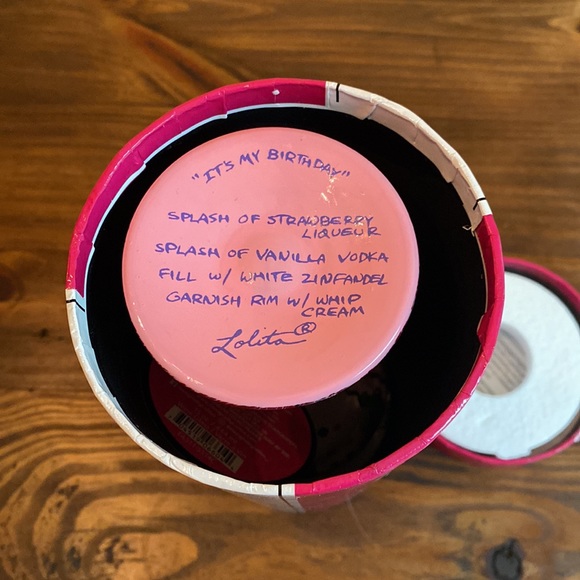 "IT'S MY BIRTHDAY"
SPLASH OF STRAWBERRY
LIQUEUR
SPLASH OF VANILLA VODKA
FILL W/ WHITE ZINFANDEL
GARNISH RIM W/ WHIP
CREAM
Lolita®